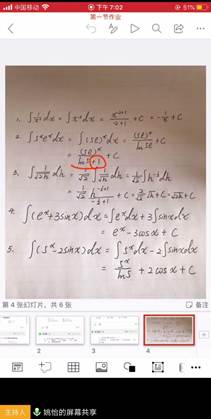 中国移动 下午7:02 53%
第一节作业
1. ∫1/x² dx = ∫x⁻² dx = x⁻²⁺¹/-2+1 + C = -1/x + C
2. ∫5ˣeˣdx = ∫(5e)ˣdx = (5e)ˣ/ln5e + C
= (5e)ˣ/ln5+1 + C
3. ∫1/√2h dh = 1/√2 ∫1/√h dh = 1/√2 ∫h^-½ dh
= 1/√2 h^-½+1/-½+1 + C = 2/√2 √h + C = √2h + C
4. ∫(eˣ+3sinx)dx = ∫eˣdx + 3∫sinxdx
= eˣ - 3cosx + C
5. ∫(5ˣ-2sinx)dx = ∫5ˣdx - 2∫sinxdx
= 5ˣ/ln5 + 2cosx + C
第 4 张幻灯片，共 6 张 备注
2 3 4
主持人 姚怡的屏幕共享